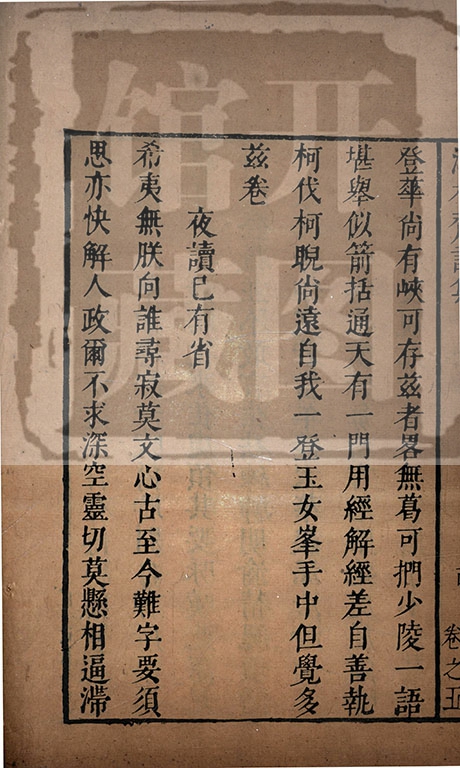 卷之五
登華尚有峽可存茲者畧無葛可捫少陵一語
堪舉似箭括通天有一門用經解經差自善執
柯伐柯睨尚遠自我一登玉女峯手中但覺多
茲卷
夜讀已有省
希夷無朕向誰尋寂莫文心古至今難字要須
思亦快解人政爾不求深空靈切莫懸相逼滯
开图
馆藏